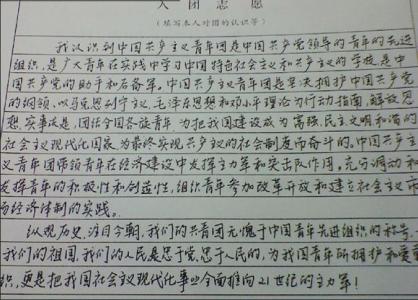 入团志愿
（填写本人对团的认识等）
我认识到中国共产主义青年团是中国共产党领导的青年的先进
组织，是广大青年在实践中学习中国特色社会主义和共产主义的学校是中
国共产党的助手和后备军。中国共产主义青年团是坚决拥护中国共产党
的纲领，以马克思列宁主义，毛泽东思想和邓小平理论为行动指南，解放思
想，实事求是，团结全国各族青年，为把我国建设成为富强，民主文明和谐的
社会主义现代化国家，为最终实现共产主义的社会制度而奋斗的。中国共产主
义青年团带领青年在经济建设中发挥主力军和突击队作用，充分调动和
发挥青年的积极性和创造性，组织青年参加改革开放和建立社会主义市
场经济体制的实践。
纵观历史，注目今朝，我们的共青团无愧于中国青年先进组织的称号。
我们的祖国，我们的人民是忠于党，忠于人民的，为我国青年所拥护和爱
织，更是把我国社会主义现代化事业全面推向21世纪的主力军！